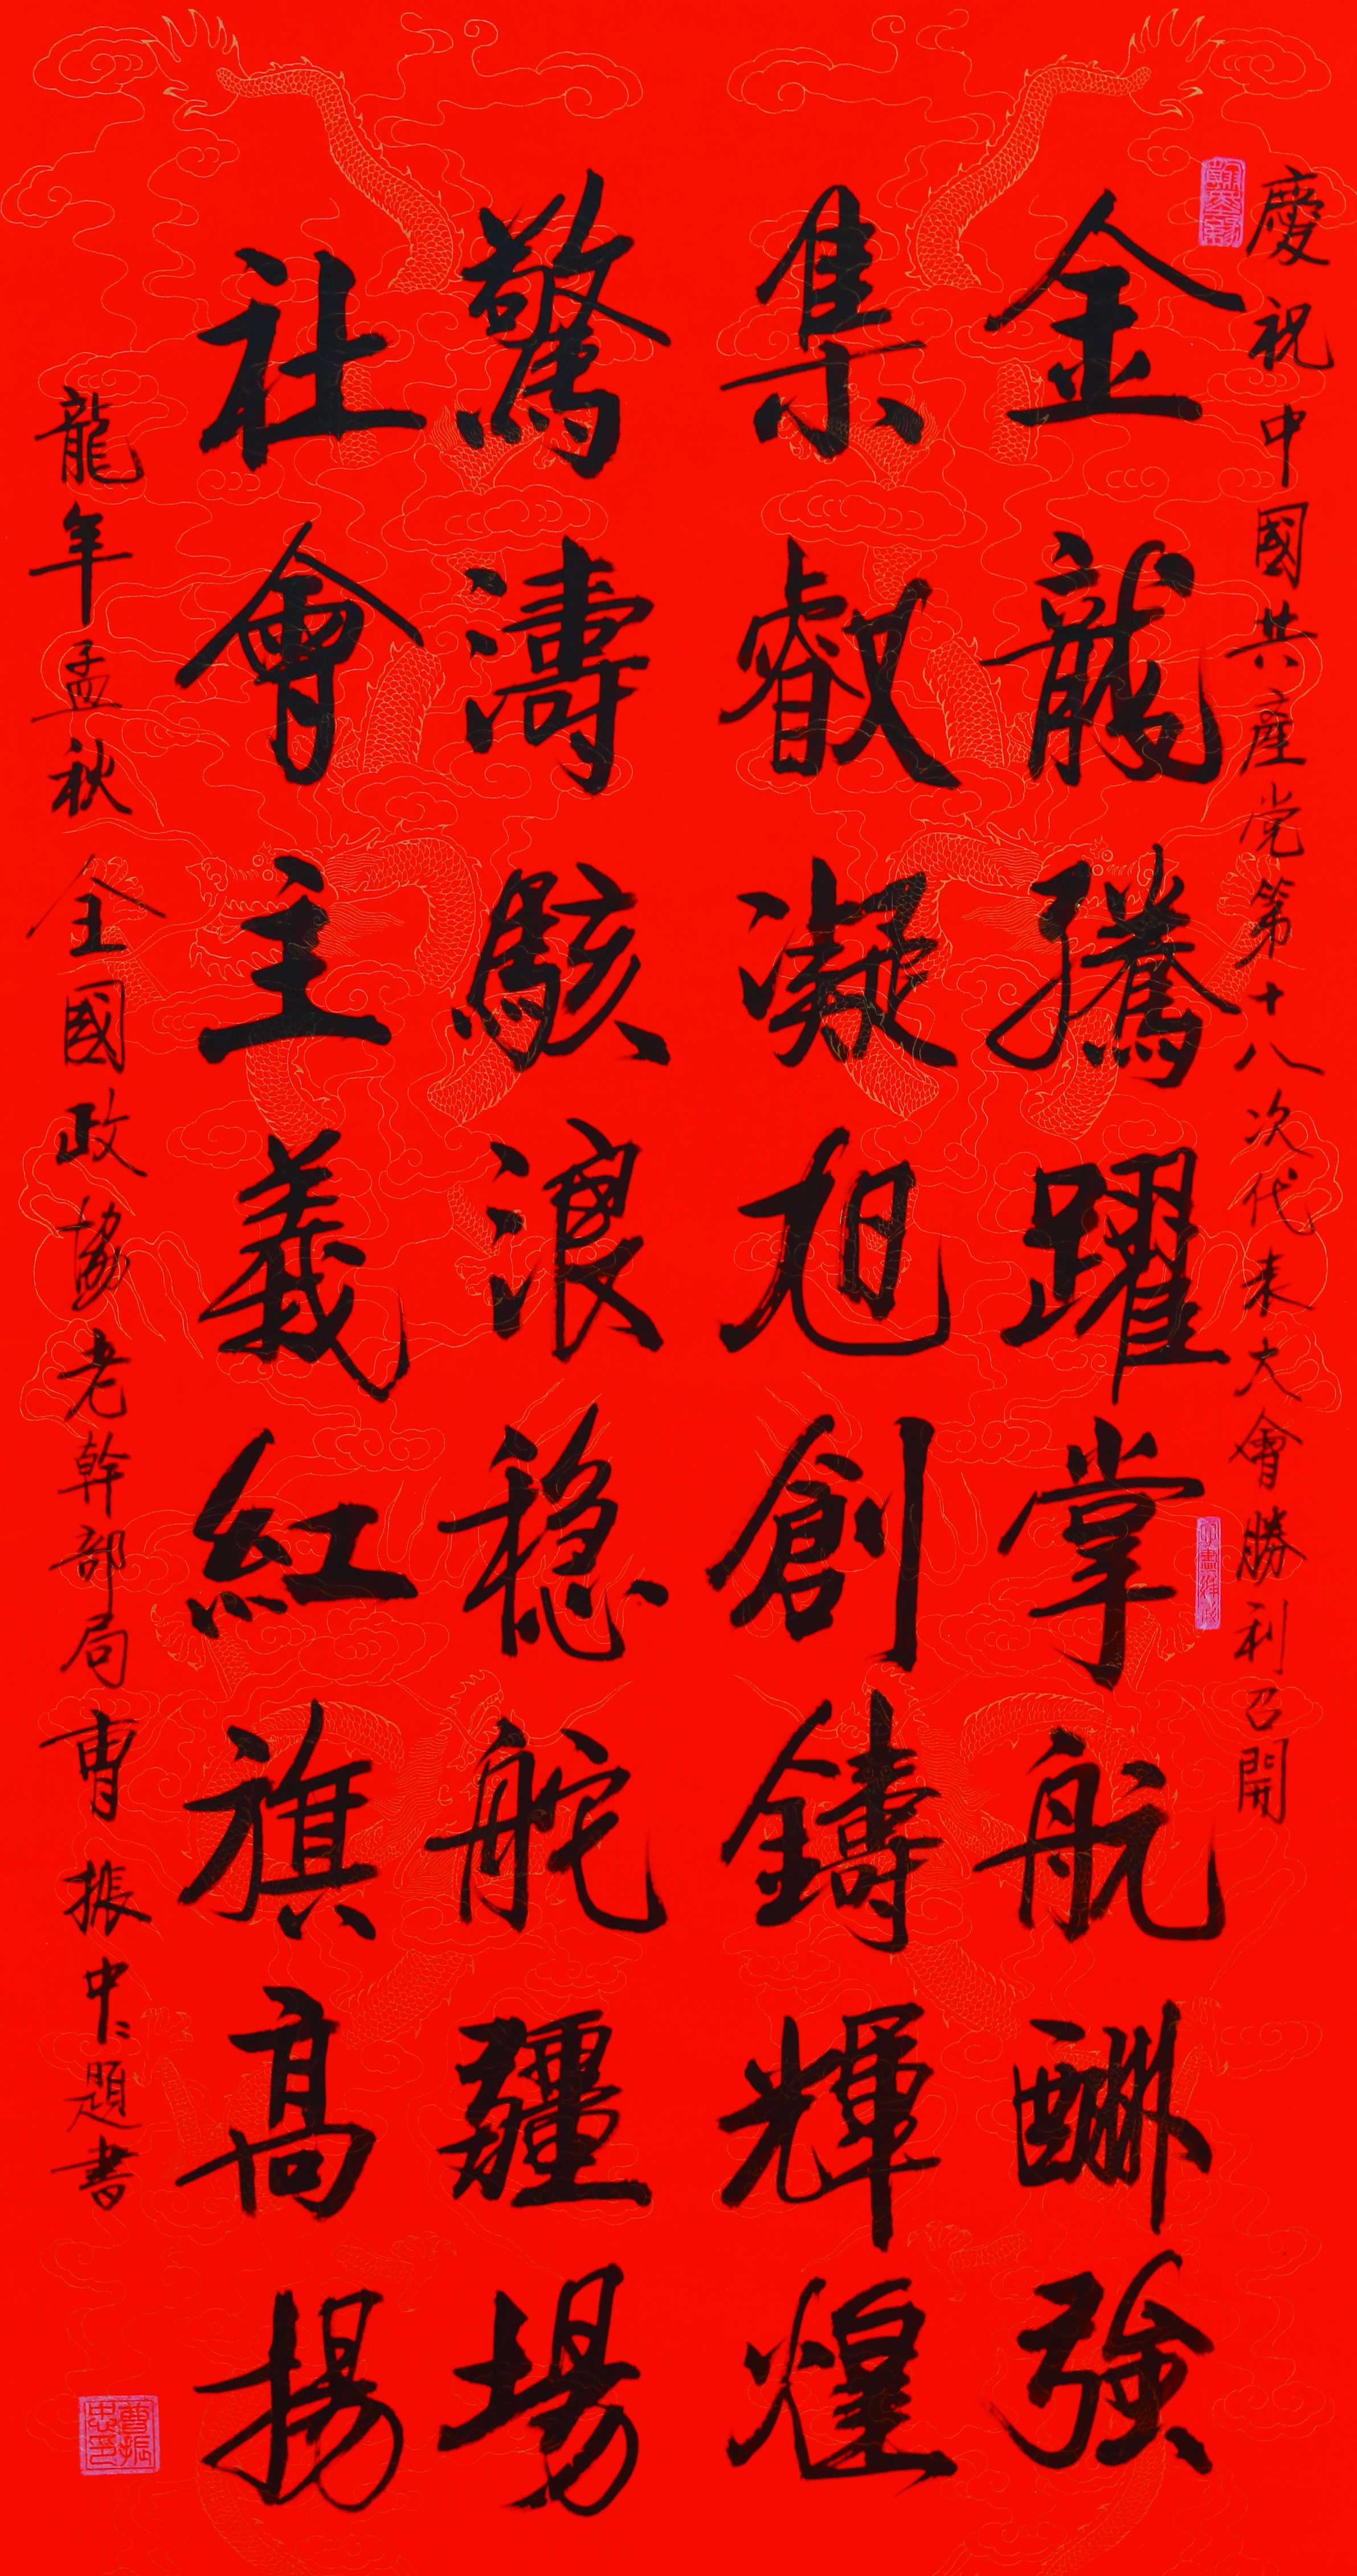 慶祝中國共產党第十八次代表大會勝利召開
金龍騰躍掌航酬強
集叡凝旭創鑄輝煌
驚濤駭浪稳舵疆場
社會主義紅旗高揚
龍年孟秋全國政協老幹部局曹振忠題書
曹振忠印